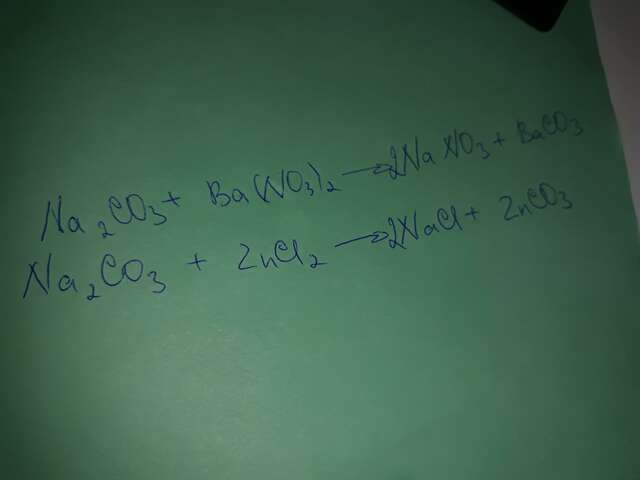 Na2CO3 + Ba(NO3)2 → 2NaNO3 + BaCO3
Na2CO3 + ZnCl2 → 2NaCl + ZnCO3